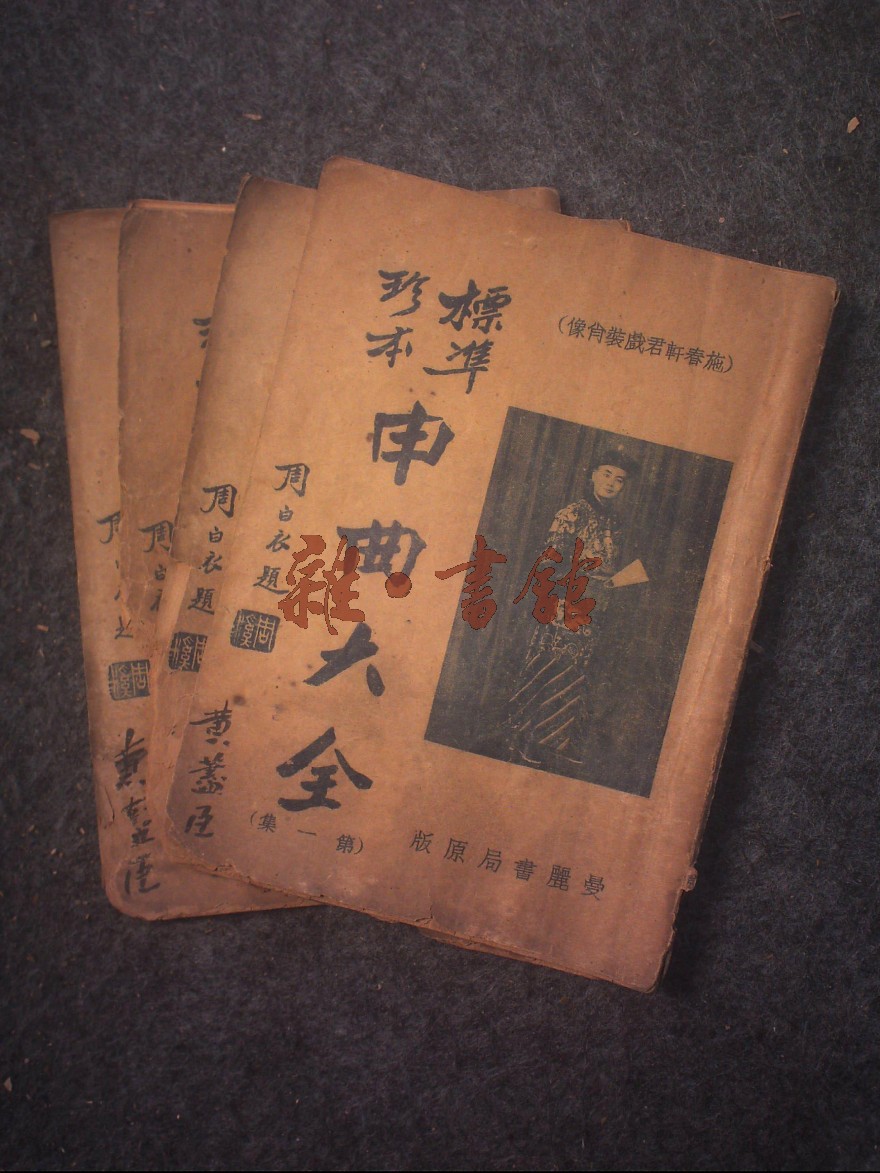 標準
珍本
申曲大全
(第一集)
周白衣題
(施春軒君戲裝肖像)
曼麗書局原版
雜·書館
周白衣題
周
周